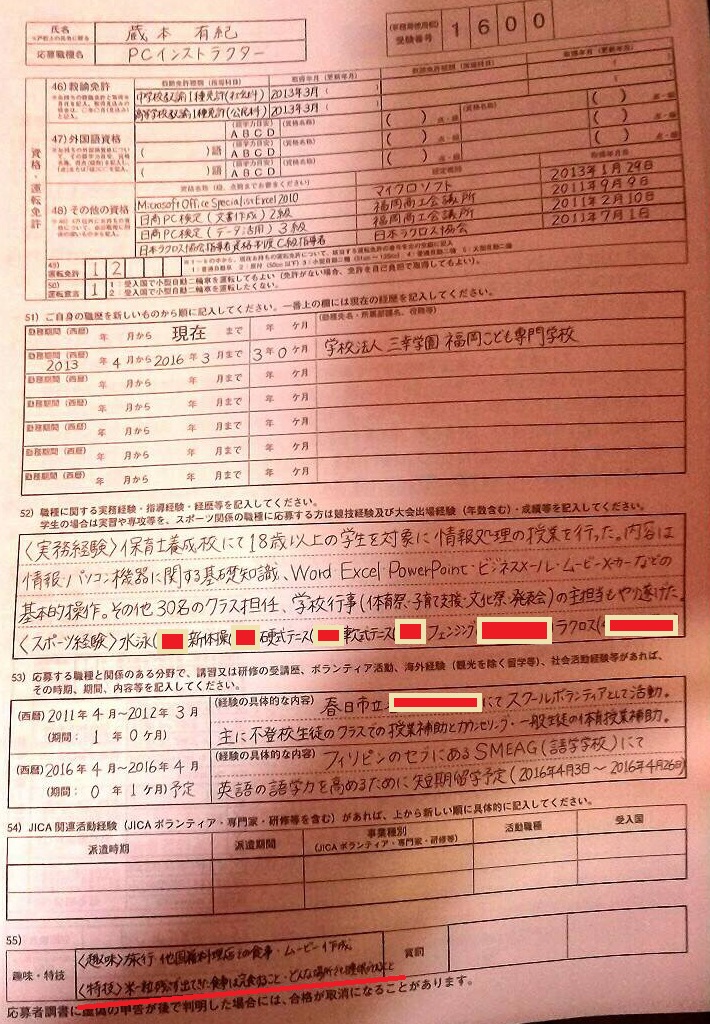 氏名 蔵本 有紀
応募職種名 PCインストラクター
受験番号 1600
資格・運転免許
46) 教諭免許
中学校教諭1種免許(社会科) 2013年3月
高等学校教諭1種免許(公民科) 2013年3月
47) 外国語資格
( )語 A B C D
( )語 A B C D
48) その他の資格
Microsoft Office Specialist Excel 2010 マイクロソフト 2013年1月29日
日商PC検定(文書作成)2級 福岡商工会議所 2011年9月9日
日商PC検定(データ活用)3級 福岡商工会議所 2011年2月10日
日本ラクロス協会指導者資格制度C級指導者 日本ラクロス協会 2011年7月1日
49) 運転免許 1 2
50) 運転宣言 1 1:受入国で小型自動二輪車を運転してもよい(免許がない場合、免許を自己負担で取得してもよい)。
2:受入国で小型自動二輪車を運転したくない。
51) ご自身の職歴を新しいものから順に記入してください。一番上の欄には現在の経歴を記入してください。
勤務期間(西暦) 年 月から 現在 まで 年 ケ月
勤務期間(西暦) 2013 年 4 月から 2016 年 3 月まで 3 年 0 ケ月 学校法人 三幸学園 福岡こども専門学校
勤務期間(西暦) 年 月から 年 月まで 年 ケ月
勤務期間(西暦) 年 月から 年 月まで 年 ケ月
勤務期間(西暦) 年 月から 年 月まで 年 ケ月
勤務期間(西暦) 年 月から 年 月まで 年 ケ月
勤務期間(西暦) 年 月から 年 月まで 年 ケ月
52) 職種に関する実務経験・指導経験・経歴等を記入してください。
学生の場合は実習や専攻等を、スポーツ関係の職種に応募する方は競技経験及び大会出場経験(年数含む)・成績等を記入してください。
〈実務経験〉保育士養成校にて18歳以上の学生を対象に情報処理の授業を行った。内容は
情報・パソコン機器に関する基礎知識、Word Excel PowerPoint・ビジネスメール・ムービーメーカーなどの
基本的操作。その他30名のクラス担任、学校行事(体育祭・子育て支援・文化祭・発表会)の主担当もやり遂げた。
〈スポーツ経験〉水泳( 新体操( 硬式テニス( 軟式テニス( フェンシング ラクロス(
53) 応募する職種と関係のある分野で、講習又は研修の受講歴、ボランティア活動、海外経験(観光を除く留学等)、社会活動経験等があれば、
その時期、期間、内容等を記入してください。
(西暦) 2011年4月〜2012年3月 (経験の具体的な内容) 春日市立 にてスクールボランティアとして活動。
(期間: 1 年 0 ケ月) 主に不登校生徒のクラスでの授業補助とカウンセリング・一般生徒の体育授業補助。
(西暦) 2016年4月〜2016年4月 (経験の具体的な内容) フィリピンのセブにあるSMEAG(語学学校)にて
(期間: 0 年 1 ケ月)予定 英語の語学力を高めるために短期留学予定(2016年4月3日〜2016年4月26日)
54) JICA関連活動経験(JICAボランティア・専門家・研修等を含む)があれば、上から新しい順に具体的に記入してください。
派遣時期 派遣期間 事業種別 活動職種 受入国
(JICAボランティア・専門家・研修等)
55)
趣味・特技 〈趣味〉旅行・他国籍料理店での食事・ムービー作成 賞罰
〈特技〉米一粒残さず出てきた食事は完食すること・どんな場所でも睡眠がとれること
応募者調書に虚偽の申告が後で判明した場合には、合格が取消になることがあります。